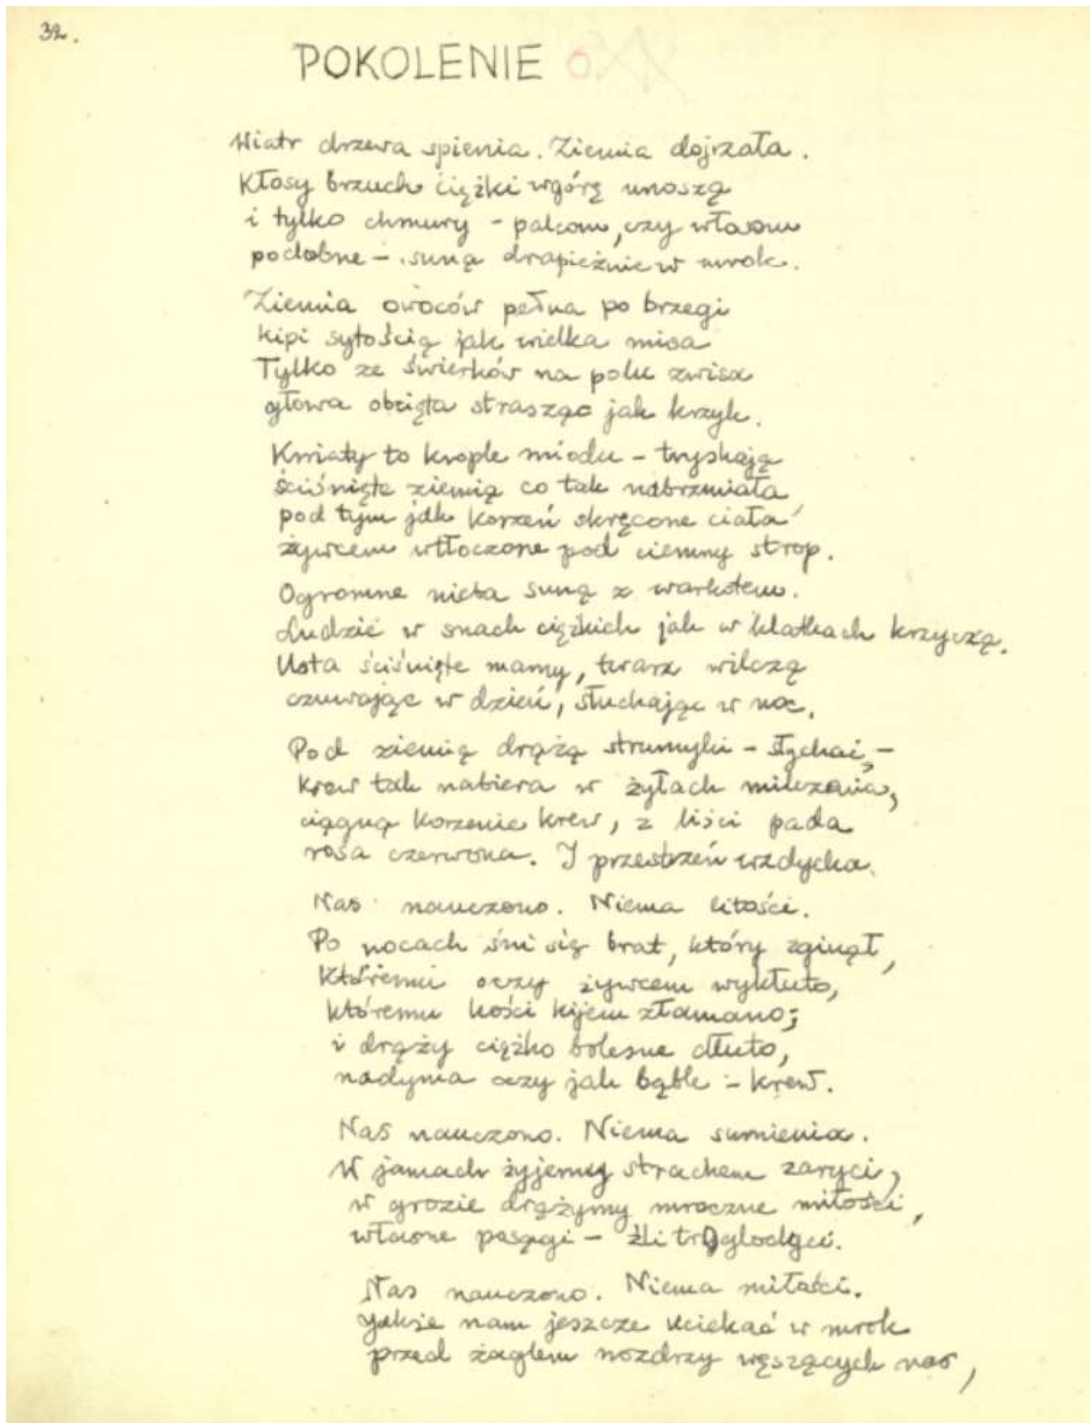 32.
POKOLENIE
Wiatr drzewa spienia. Ziemia dojrzała.
Kłosy brzuch ciężki wgórę unoszą
i tylko chmury - palcom, czy włosom
podobne - suną drapieżnie w mrok.
Ziemia owoców pełna po brzegi
kipi sytością jak wielka misa
Tylko ze świerków na polu zwisa
głowa obcięta strasząc jak krzyk.
Kwiaty to krople miodu - tryskają
ściśnięte ziemią co tak nabrzmiała
pod tym jak korzeń skręcone ciała
żywcem wtłoczone pod ciemny strop.
Ogromne nieba suną z warkotem.
Ludzie w snach ciężkich jak w klatkach krzyczą.
Usta ściśnięte mamy, twarz wilczą
czuwając w dzień, słuchając w noc.
Pod ziemią drążą strumyki - słychać, -
krew tak nabiera w żyłach milczenia,
ciągną korzenie krew, z liści pada
rosa czerwona. I przestrzeń wzdycha.
Nas nauczono. Niema litości.
Po nocach śni się brat, który zginął,
któremu oczy żywcem wykłuto,
któremu kości kijem złamano;
i drąży ciężko bolesne dłuto,
nadyma oczy jak bąble - krew.
Nas nauczono. Niema sumienia.
W jamach żyjemy strachem zaryci,
w grozie drążymy mroczne miłości,
własne posągi - źli troglodyci.
Nas nauczono. Niema miłości.
Jakże nam jeszcze uciekać w mrok
przed żaglem nozdrzy węszących nas,